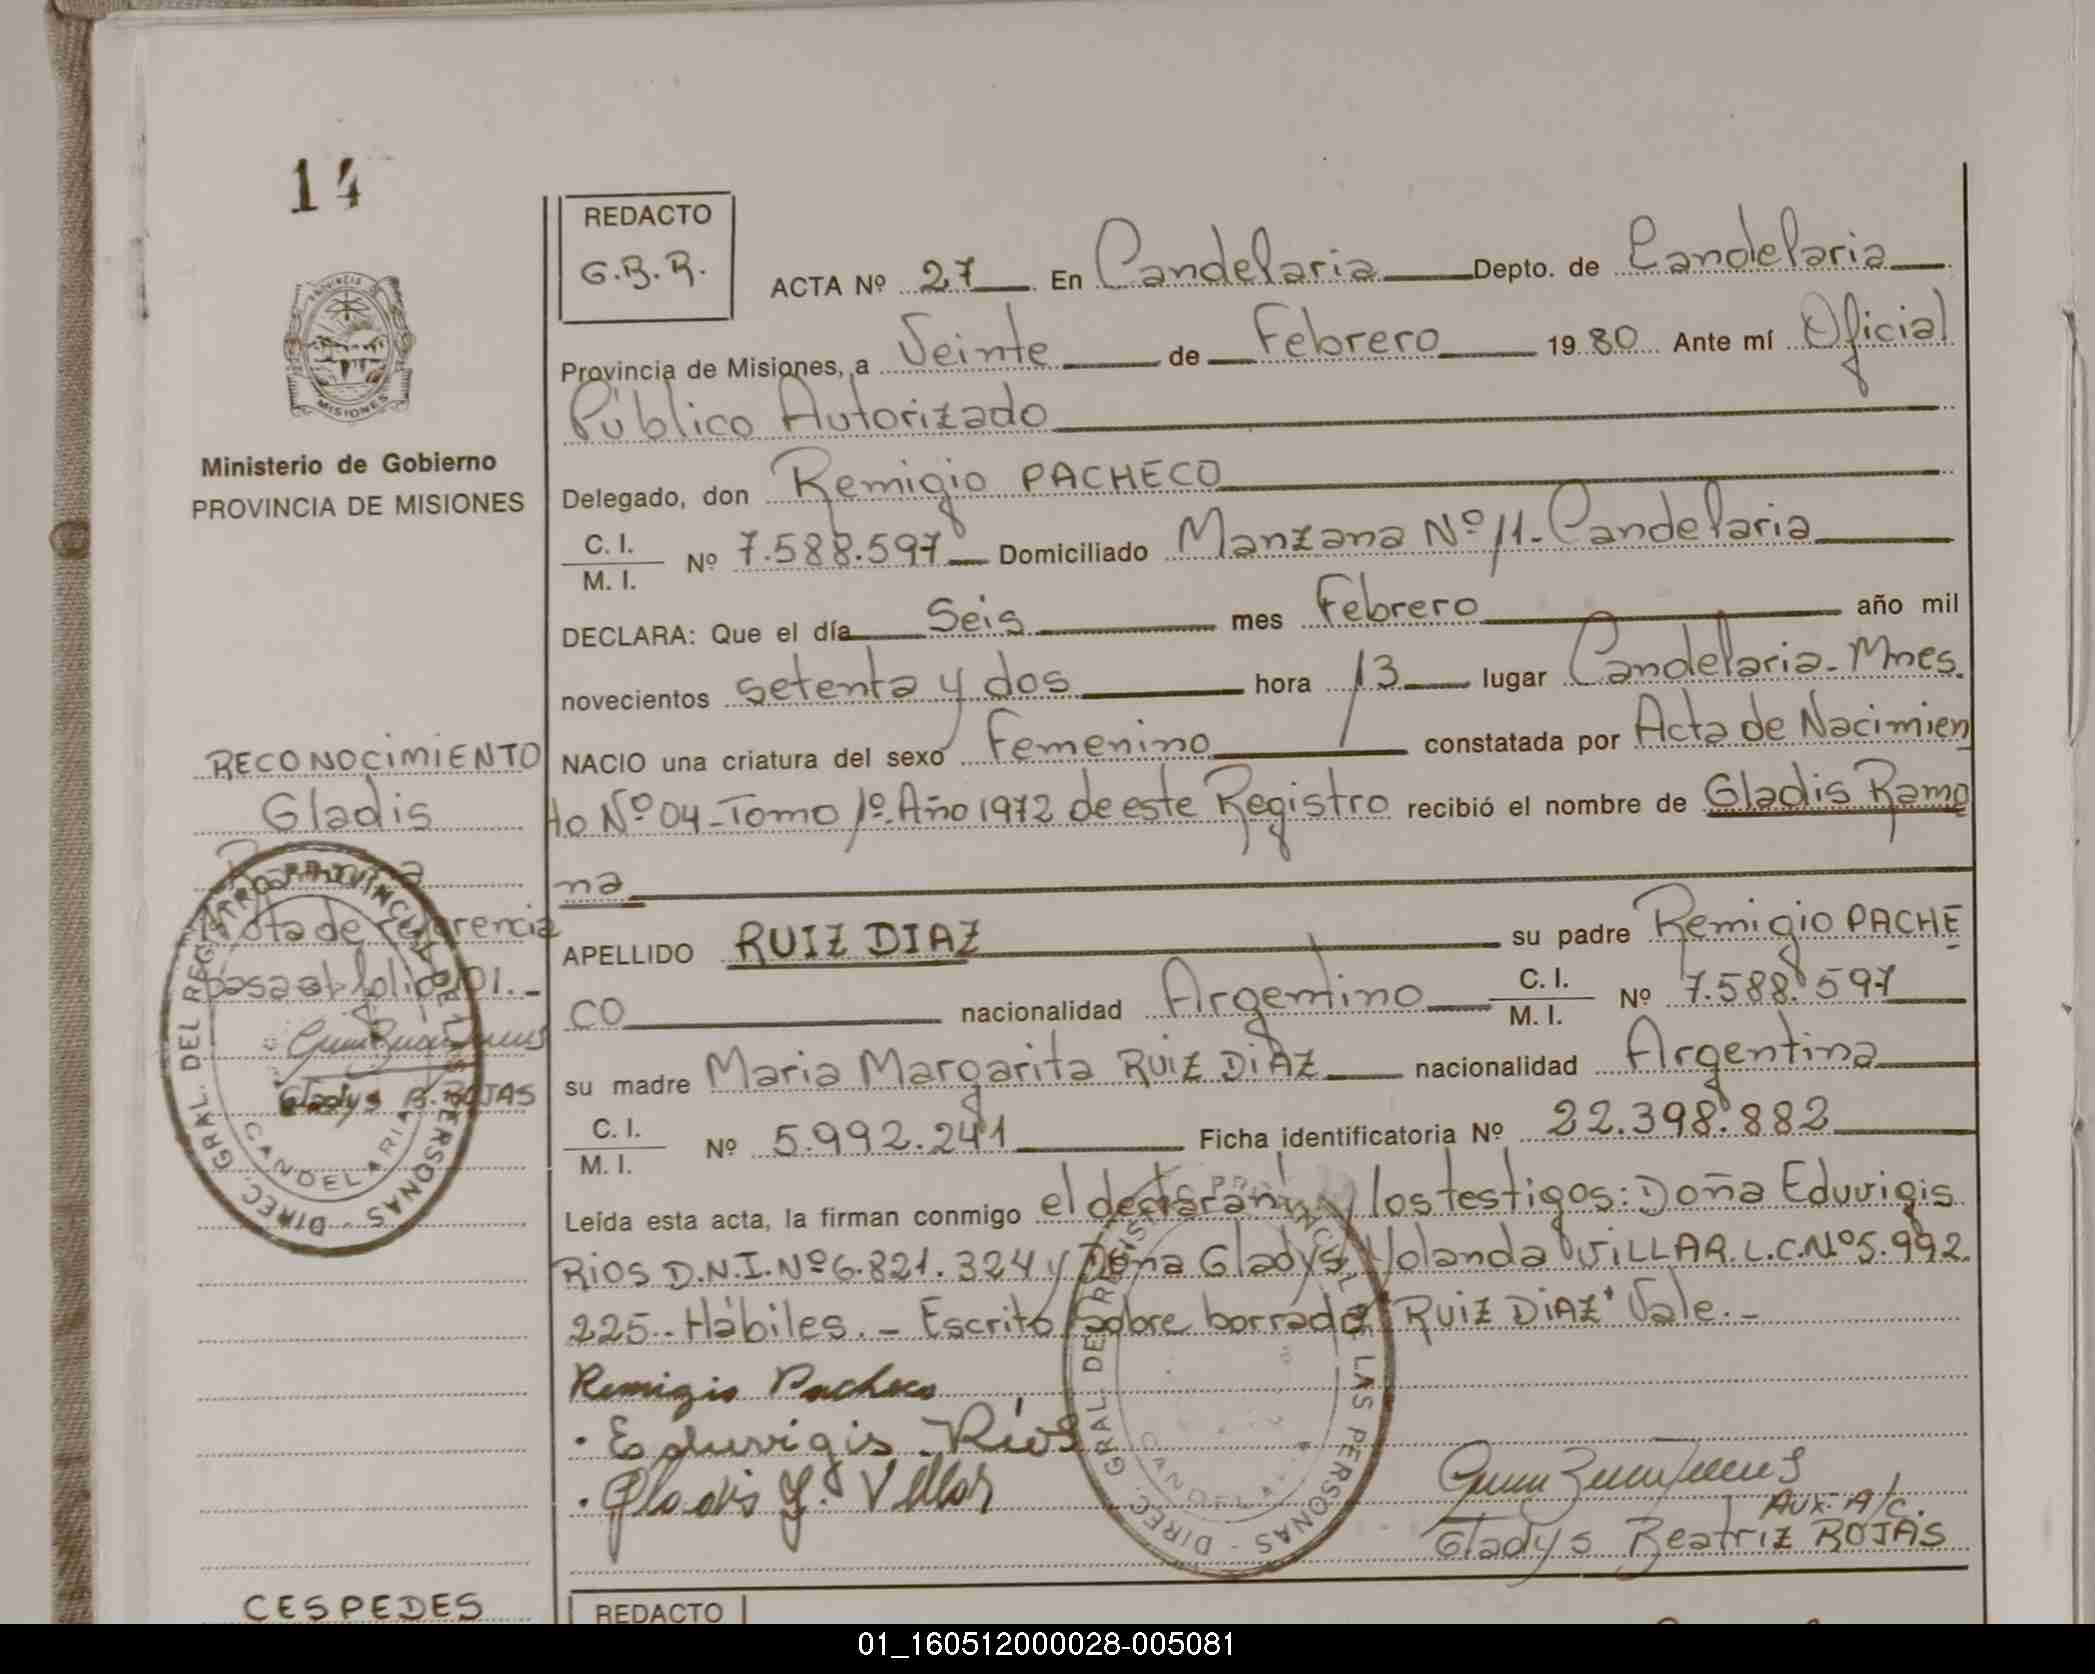 14
REDACTO
G.B.R.
ACTA Nº 27 En Candelaria Depto. de Candelaria
Provincia de Misiones, a Veinte de Febrero 1980 Ante mí Oficial
Público Autorizado
Delegado, don Remigio PACHECO
C. I.
M. I.
Nº 7.588.597 Domiciliado Manzana Nº 11-Candelaria
DECLARA: Que el día Seis mes Febrero año mil
novecientos setenta y dos hora 13 lugar Candelaria-Mnes.
NACIO una criatura del sexo Femenino constatada por Acta de Nacimien
to Nº 04-Tomo 1º-Año 1972 de este Registro recibió el nombre de Gladis Ramo
na
APELLIDO RUIZ DIAZ su padre Remigio PACHE
CO nacionalidad Argentino C. I. M. I. Nº 7.588.597
su madre Maria Margarita RUIZ DIAZ nacionalidad Argentina
C. I.
M. I.
Nº 5.992.241 Ficha identificatoria Nº 22.398.882
Leída esta acta, la firman conmigo el declarante y los testigos: Doña Eduvigis
RIOS D.N.I. Nº 6.821.324 y Doña Gladys Yolanda VILLAR. L.C. Nº 5.992.
225.- Hábiles.- Escrito sobre borrado "RUIZ DIAZ" Vale.-
Remigio Pacheco
Eduvigis Ríos
Gladis Y. Villar
Aux. A/c.
Gladys Beatriz ROJAS
PROVINCIA
MISIONES
Ministerio de Gobierno
PROVINCIA DE MISIONES
RECONOCIMIENTO
Gladis
Ramona
Nota de referencia
pasa al folio 101.-
Gladys B. ROJAS
DIREC. GRAL. DEL REGISTRO PROVINCIAL DE LAS PERSONAS
CANDELARIA
DIREC. GRAL. DEL REGISTRO PROVINCIAL DE LAS PERSONAS
CANDELARIA
CESPEDES
REDACTO
01_160512000028-005081